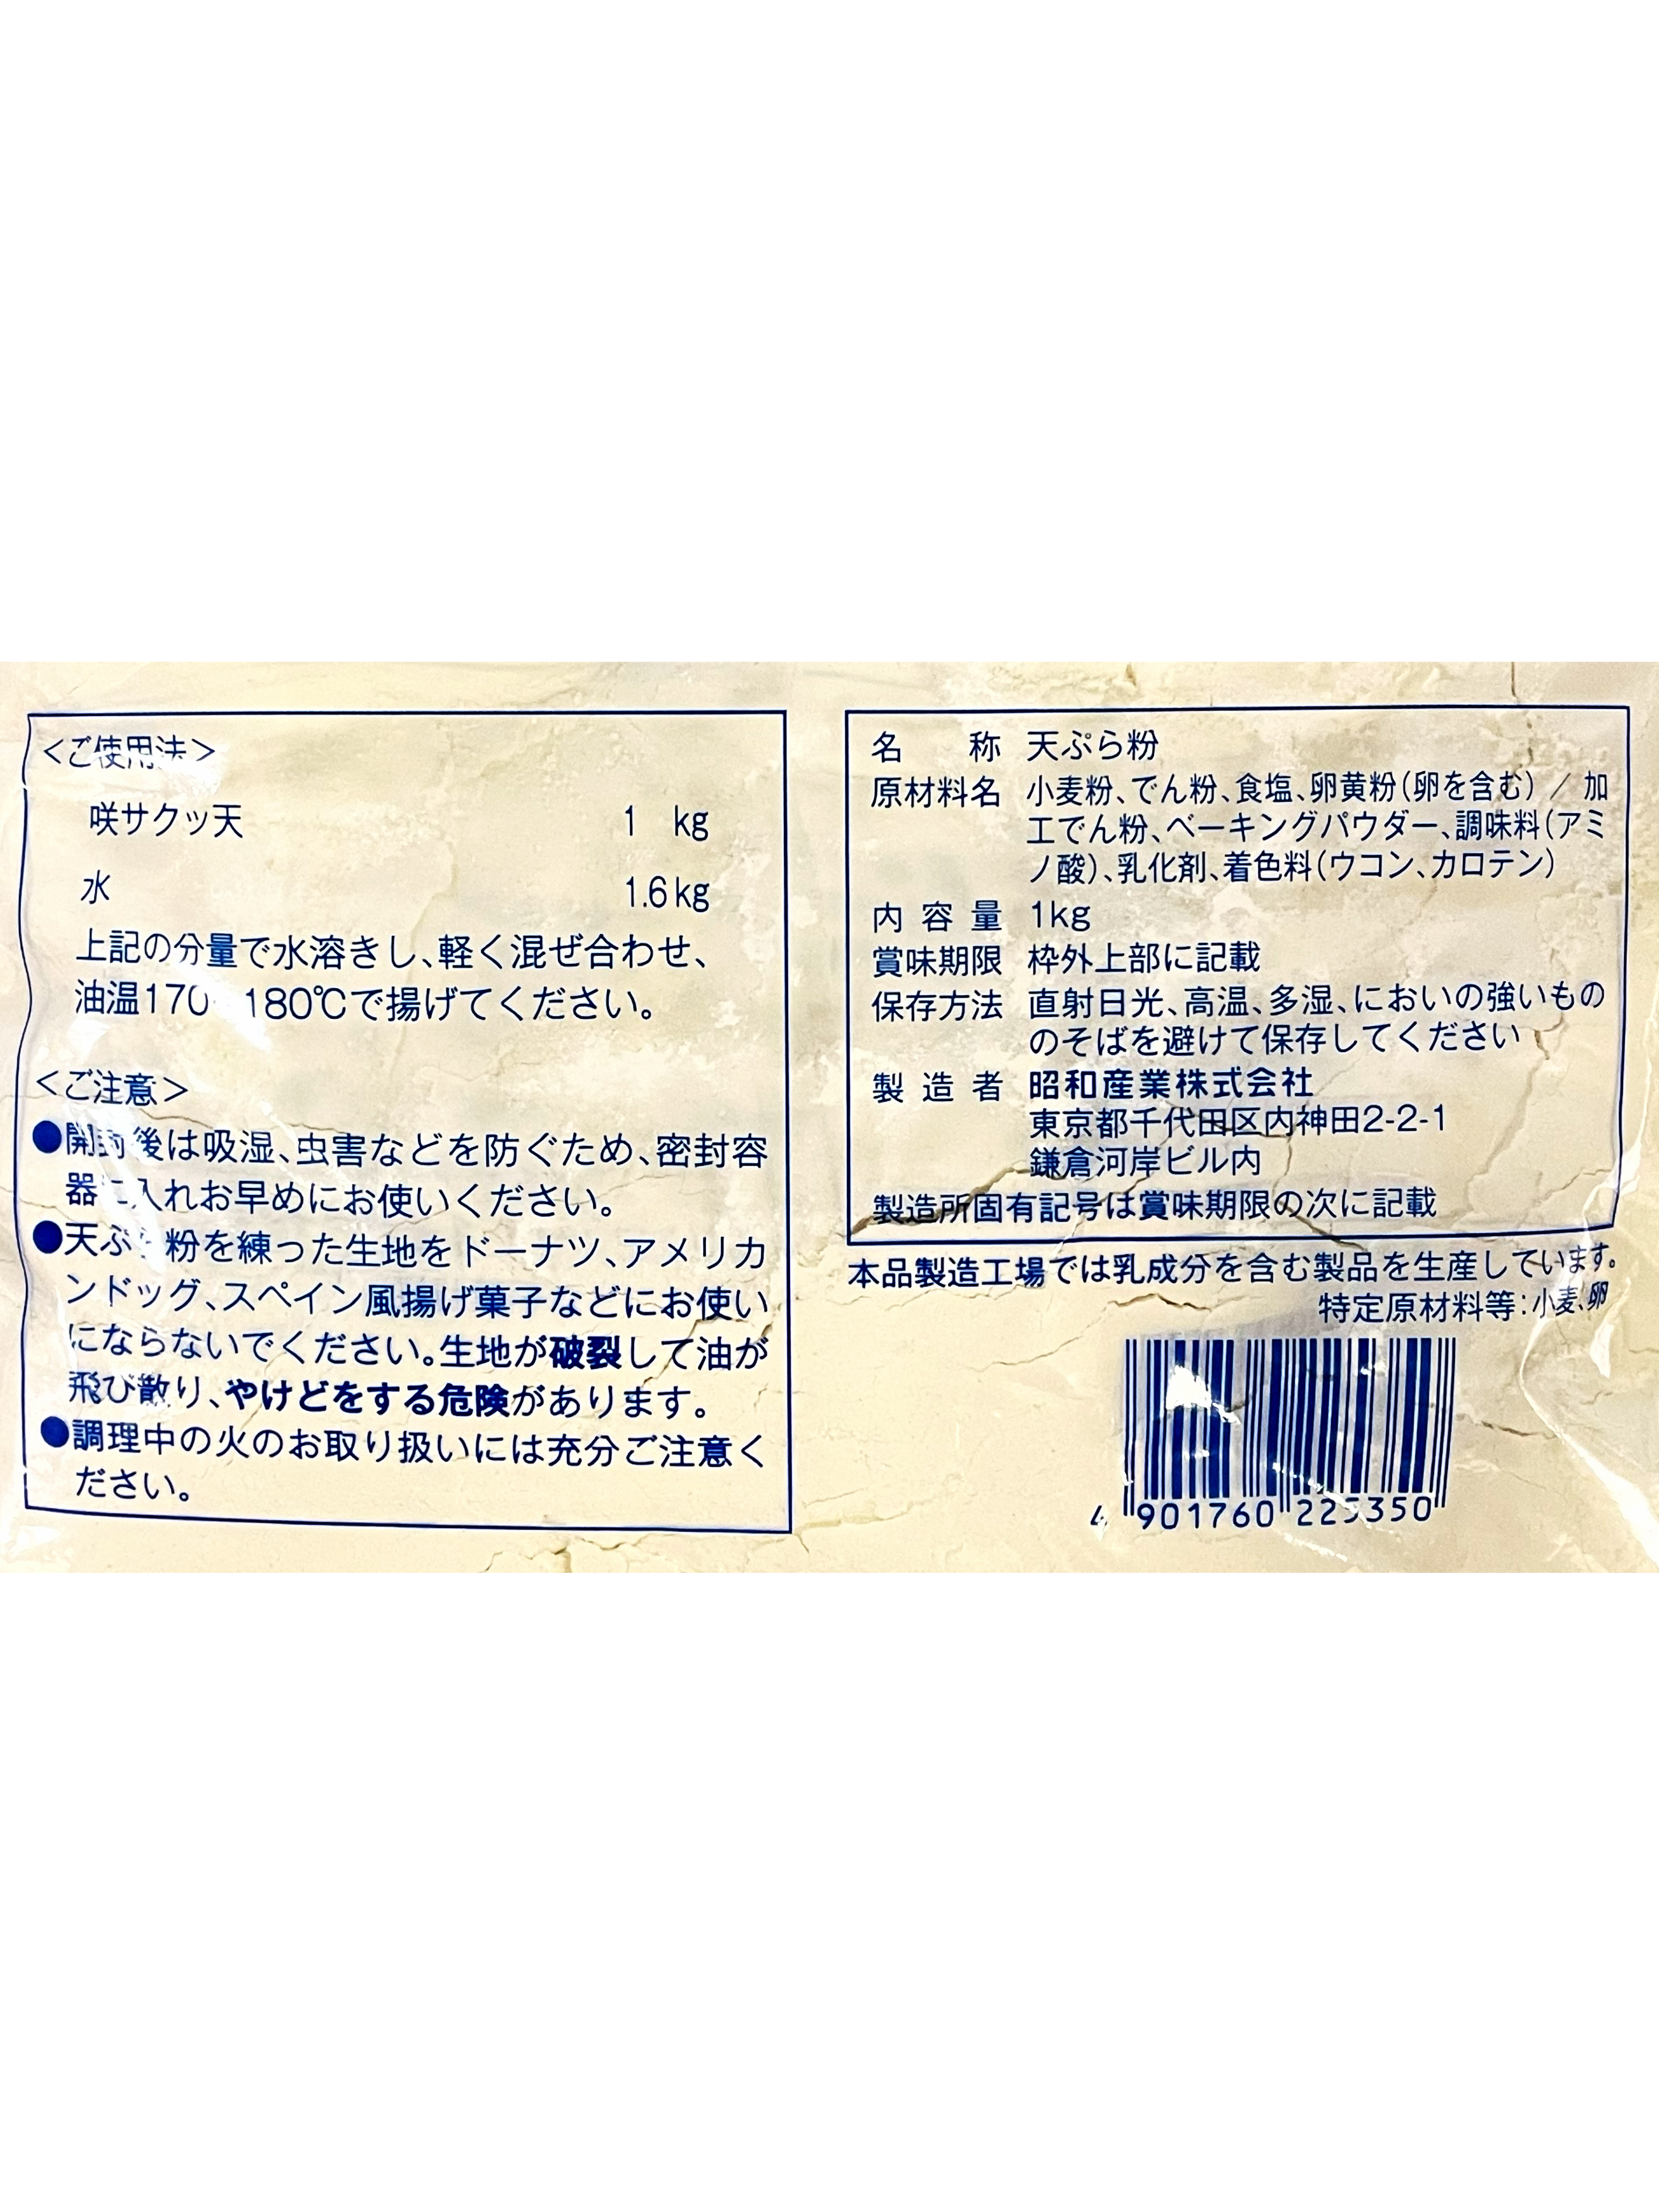 ＜ご使用法＞
咲サクッ天 1 kg
水 1.6kg
上記の分量で水溶きし、軽く混ぜ合わせ、
油温170 180℃で揚げてください。
＜ご注意＞
●開封後は吸湿、虫害などを防ぐため、密封容
器に入れお早めにお使いください。
●天ぷら粉を練った生地をドーナツ、アメリカ
ンドッグ、スペイン風揚げ菓子などにお使い
にならないでください。生地が破裂して油が
飛び散り、やけどをする危険があります。
●調理中の火のお取り扱いには充分ご注意く
ださい。
名称 天ぷら粉
原材料名 小麦粉、でん粉、食塩、卵黄粉(卵を含む) / 加
工でん粉、ベーキングパウダー、調味料(アミ
ノ酸)、乳化剤、着色料(ウコン、カロテン)
内容量 1kg
賞味期限 枠外上部に記載
保存方法 直射日光、高温、多湿、においの強いもの
のそばを避けて保存してください
製造者 昭和産業株式会社
東京都千代田区内神田2-2-1
鎌倉河岸ビル内
製造所固有記号は賞味期限の次に記載
本品製造工場では乳成分を含む製品を生産しています。
特定原材料等：小麦、卵
4 901760 225350